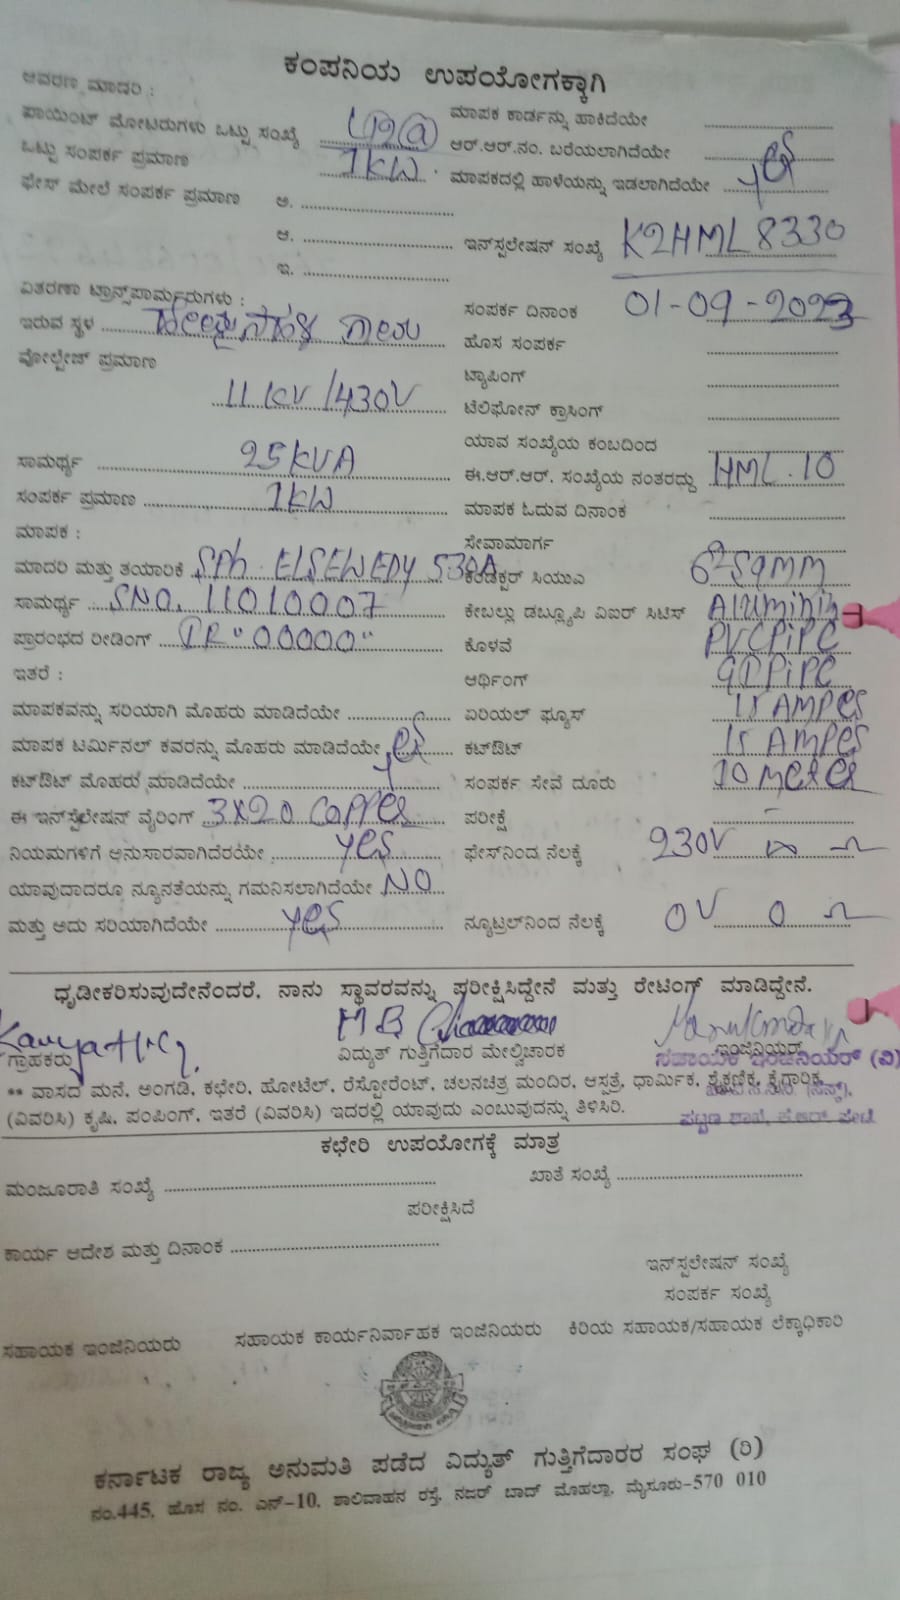 ಕಂಪನಿಯ ಉಪಯೋಗಕ್ಕಾಗಿ
ಆವರಣ ಮಾದರಿ :
ಪಾಯಿಂಟ್ ಮೋಟರುಗಳು ಒಟ್ಟು ಸಂಖ್ಯೆ
ಒಟ್ಟು ಸಂಪರ್ಕ ಪ್ರಮಾಣ 1KW.
ಫೇಸ್ ಮೇಲೆ ಸಂಪರ್ಕ ಪ್ರಮಾಣ ಅ.
ಆ.
ಇ.
ವಿತರಣಾ ಟ್ರಾನ್ಸ್‌ಪಾರ್ಮರುಗಳು :
ಇರುವ ಸ್ಥಳ ಗ್ರಾಮ
ವೋಲ್ಟೇಜ್ ಪ್ರಮಾಣ
11 KV/430V
ಸಾಮರ್ಥ್ಯ 25KVA
ಸಂಪರ್ಕ ಪ್ರಮಾಣ 1KW
ಮಾಪಕ :
ಮಾದರಿ ಮತ್ತು ತಯಾರಿಕೆ SPh. ELSEWEDY 530A
ಸಾಮರ್ಥ್ಯ SNO. 11010007
ಪ್ರಾರಂಭದ ರೀಡಿಂಗ್ IR "00000"
ಇತರೆ :
ಮಾಪಕವನ್ನು ಸರಿಯಾಗಿ ಮೊಹರು ಮಾಡಿದೆಯೇ
ಮಾಪಕ ಟರ್ಮಿನಲ್ ಕವರನ್ನು ಮೊಹರು ಮಾಡಿದೆಯೇ yes
ಕಟ್‌ಔಟ್ ಮೊಹರು ಮಾಡಿದೆಯೇ
ಈ ಇನ್‌ಸ್ಟಲೇಷನ್ ವೈರಿಂಗ್ 3X20 Copper
ನಿಯಮಗಳಿಗೆ ಅನುಸಾರವಾಗಿದೆರಯೇ yes
ಯಾವುದಾದರೂ ನ್ಯೂನತೆಯನ್ನು ಗಮನಿಸಲಾಗಿದೆಯೇ NO
ಮತ್ತು ಅದು ಸರಿಯಾಗಿದೆಯೇ yes
ಮಾಪಕ ಕಾರ್ಡನ್ನು ಹಾಕಿದೆಯೇ
ಆರ್.ಆರ್.ನಂ. ಬರೆಯಲಾಗಿದೆಯೇ
ಮಾಪಕದಲ್ಲಿ ಹಾಳೆಯನ್ನು ಇಡಲಾಗಿದೆಯೇ yes
ಇನ್‌ಸ್ಪಲೇಷನ್ ಸಂಖ್ಯೆ K2HML8330
ಸಂಪರ್ಕ ದಿನಾಂಕ 01-09-2023
ಹೊಸ ಸಂಪರ್ಕ
ಟ್ಯಾಪಿಂಗ್
ಟೆಲಿಫೋನ್ ಕ್ರಾಸಿಂಗ್
ಯಾವ ಸಂಖ್ಯೆಯ ಕಂಬದಿಂದ
ಈ.ಆರ್.ಆರ್. ಸಂಖ್ಯೆಯ ನಂತರದ್ದು HML.10
ಮಾಪಕ ಓದುವ ದಿನಾಂಕ
ಸೇವಾಮಾರ್ಗ
ಕಂಡಕ್ಟರ್ ಸಿಯುಎ 6 Sqmm
ಕೇಬಲ್ಲು ಡಬ್ಲ್ಯೂಪಿ ವಿಐರ್ ಸಿಟಿಸ್
ಕೊಳವೆ PVC PiPe
ಆರ್ಥಿಂಗ್ GI PiPe
ಏರಿಯಲ್ ಫ್ಯೂಸ್ 15 AMPes
ಕಟ್‌ಔಟ್ 15 AMPes
ಸಂಪರ್ಕ ಸೇವೆ ದೂರು 10 Meter
ಪರೀಕ್ಷೆ
ಫೇಸ್‌ನಿಂದ ನೆಲಕ್ಕೆ 230V ∞ Ω
ನ್ಯೂಟ್ರಲ್‌ನಿಂದ ನೆಲಕ್ಕೆ 0V 0 Ω
ಧೃಡೀಕರಿಸುವುದೇನೆಂದರೆ, ನಾನು ಸ್ಥಾವರವನ್ನು ಪರೀಕ್ಷಿಸಿದ್ದೇನೆ ಮತ್ತು ರೇಟಿಂಗ್ ಮಾಡಿದ್ದೇನೆ.
ಗ್ರಾಹಕರು ವಿದ್ಯುತ್ ಗುತ್ತಿಗೆದಾರ ಮೇಲ್ವಿಚಾರಕ ಇಂಜಿನಿಯರ್
ಸಹಾಯಕ ಇಂಜಿನಿಯರ್ (ವಿ)
** ವಾಸದ ಮನೆ, ಅಂಗಡಿ, ಕಛೇರಿ, ಹೋಟೆಲ್, ರೆಸ್ಟೋರೆಂಟ್, ಚಲನಚಿತ್ರ ಮಂದಿರ, ಆಸ್ಪತ್ರೆ, ಧಾರ್ಮಿಕ, ಶೈಕ್ಷಣಿಕ, ಕೈಗಾರಿಕ
(ವಿವರಿಸಿ) ಕೃಷಿ, ಪಂಪಿಂಗ್, ಇತರೆ (ವಿವರಿಸಿ) ಇದರಲ್ಲಿ ಯಾವುದು ಎಂಬುವುದನ್ನು ತಿಳಿಸಿರಿ.
ಪಟ್ಟಣ ಶಾಖೆ, ಕೆ.ಆರ್.ಪೇಟೆ
ಕಛೇರಿ ಉಪಯೋಗಕ್ಕೆ ಮಾತ್ರ
ಮಂಜೂರಾತಿ ಸಂಖ್ಯೆ ಖಾತೆ ಸಂಖ್ಯೆ
ಪರೀಕ್ಷಿಸಿದೆ
ಕಾರ್ಯ ಆದೇಶ ಮತ್ತು ದಿನಾಂಕ
ಇನ್‌ಸ್ಪಲೇಷನ್ ಸಂಖ್ಯೆ
ಸಂಪರ್ಕ ಸಂಖ್ಯೆ
ಸಹಾಯಕ ಇಂಜಿನಿಯರು ಸಹಾಯಕ ಕಾರ್ಯನಿರ್ವಾಹಕ ಇಂಜಿನಿಯರು ಕಿರಿಯ ಸಹಾಯಕ/ಸಹಾಯಕ ಲೆಕ್ಕಾಧಿಕಾರಿ
ಕರ್ನಾಟಕ ರಾಜ್ಯ ಅನುಮತಿ ಪಡೆದ ವಿದ್ಯುತ್ ಗುತ್ತಿಗೆದಾರರ ಸಂಘ (ರಿ)
ನಂ.445, ಹೊಸ ನಂ. ಎನ್-10, ಶಾಲಿವಾಹನ ರಸ್ತೆ, ನಜರ್ ಬಾದ್ ಮೊಹಲ್ಲಾ, ಮೈಸೂರು-570 010